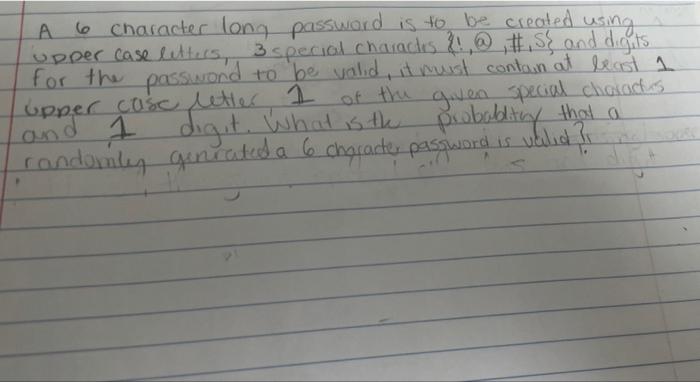 A 6 character long password is to be created using
upper case letters, 3 special characters {!, @, #, S} and digits
for the password to be valid, it must contain at least 1
upper case letter, 1 of the given special characters
and 1 digit. What is the probability that a
randomly genrated a 6 character password is valid?